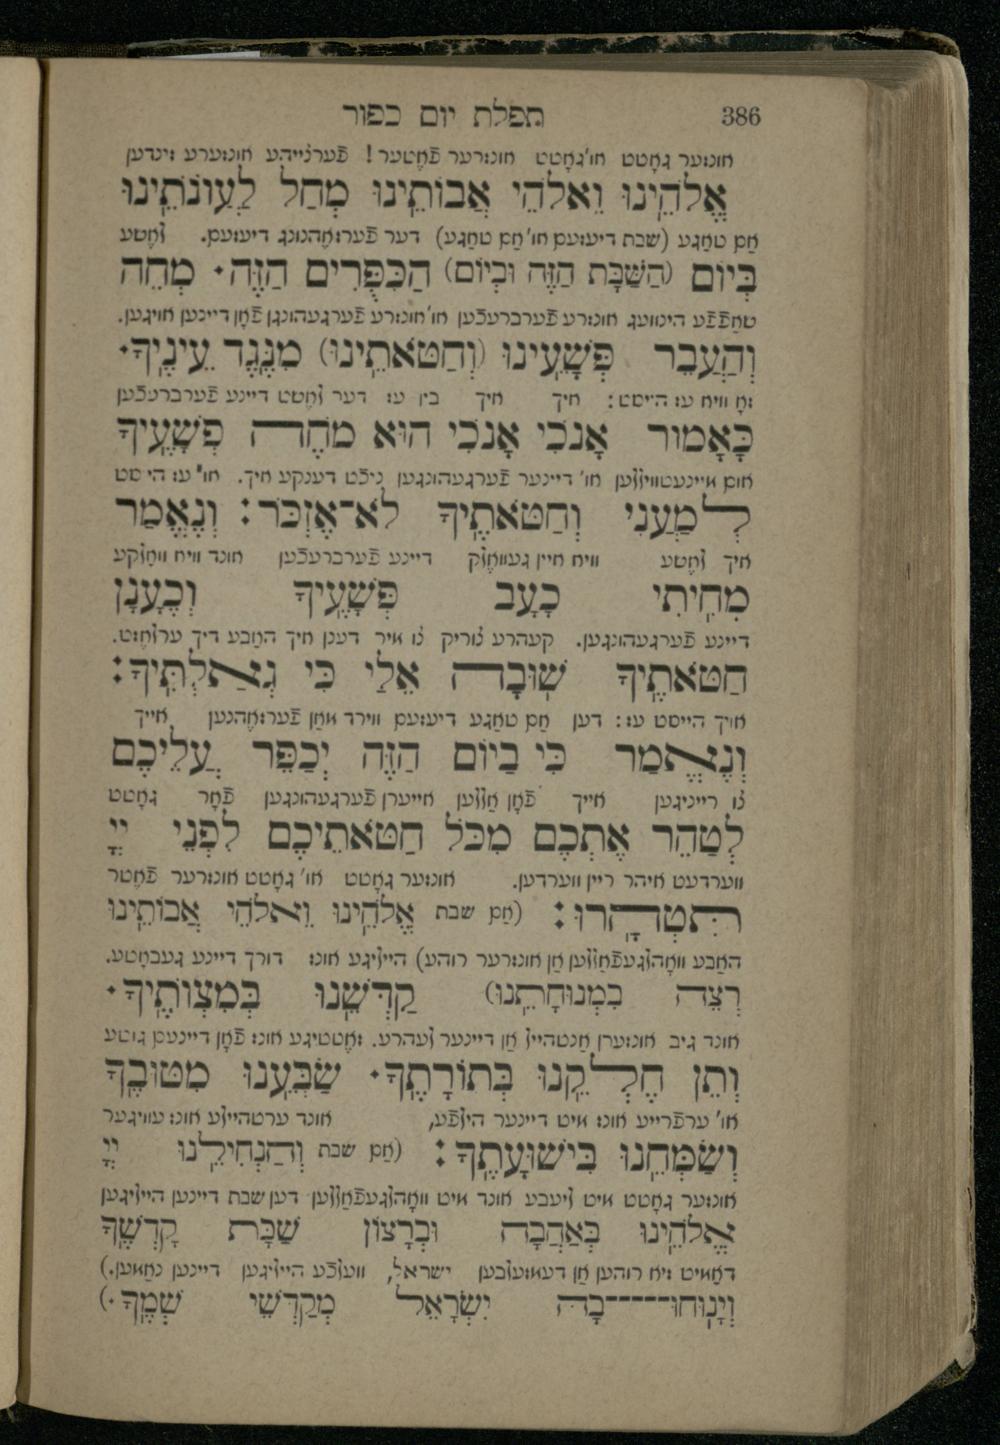 386 תפלת יום כפור
אונזער גאָטט או' גאָטט אונזרער פֿאָטער! פֿערנייהע אונזערע זינדען
אֱלֹהֵינוּ וֵאלֹהֵי אֲבוֹתֵינוּ מְחַל לַעֲוֹנֹתֵינוּ
אַם טאַגע (שבת דיעזעם או' אַם טאַגע) דער פֿערזאָהנונג דיעזעם. לאָטע
בְּיוֹם (הַשַּׁבָּת הַזֶּה וּבְיוֹם) הַכִּפֻּרִים הַזֶּה· מְחֵה
שאַפֿפֿע הינוועג אונזרע פֿערברעכֿען או' אונזרע פֿערגעהונגן פֿאָן דיינען אויגען.
וְהַעֲבֵר פְּשָׁעֵינוּ (וְחַטֹּאתֵינוּ) מִנֶּגֶד עֵינֶיךָ·
זאָ וויא עז הייסט: איך איך בין עז דער לאָטט דיינע פֿערברעכֿען
כָּאָמוּר אָנֹכִי אָנֹכִי הוּא מֹחֶה פְשָׁעֶיךָ
אום מיינעטווילן או' דיינער פֿערגעהונגען ניכֿט דענקע איך. או' עז הייסט
לְמַעֲנִי וְחַטֹּאתֶיךָ לֹא־אֶזְכֹּר: וְנֶאֱמַר
איך לאָטע וויא איין געוואָלק דיינע פֿערברעכֿען אונד וויא וואָלקע
מָחִיתִי כָעָב פְּשָׁעֶיךָ וְכֶעָנָן
דיינע פֿערגעהונגען. קעהרע צוריק צו מיר דענן איך האַבע דיך ערלאָזט.
חַטֹּאתֶיךָ שׁוּבָה אֵלַי כִּי גְאַלְתִּיךָ:
אויך הייסט עז: דען אַם טאַגע דיעזעם ווירד מאַן פֿערזאָהנען אייך
וְנֶאֱמַר כִּי בַיּוֹם הַזֶּה יְכַפֵּר עֲלֵיכֶם
צו רייניגען אייך פֿאָן אַללען אייערן פֿערגעהונגען פֿאָר גאָטט
לְטַהֵר אֶתְכֶם מִכֹּל חַטֹּאתֵיכֶם לִפְנֵי יְיָ
ווערדעט איהר ריין ווערדען. אונזער גאָטט או' גאָטט אונזרער פֿאָטר
תִּטְהָרוּ: (אַם שבת אֱלֹהֵינוּ וֵאלֹהֵי אֲבוֹתֵינוּ
האַבע וואָהלגעפֿאַללען אַן אונזרער רוהע) הייליגע אונז דורך דיינע געבאָטע.
רְצֵה בִמְנוּחָתֵנוּ) קַדְּשֵׁנוּ בְּמִצְוֹתֶיךָ·
אונד גיב אונזערן אַנטהייל אַן דיינער לעהרע. זאָטטיגע אונז פֿאָן דיינעם גוטע
וְתֵן חֶלְקֵנוּ בְּתוֹרָתֶךָ· שַׂבְּעֵנוּ מִטּוּבֶךָ
או' ערפֿרייע אונז מיט דיינער הילפֿע, אונד ערטהיילע אונז עוויגער
וְשַׂמְּחֵנוּ בִּישׁוּעָתֶךָ: (אַם שבת וְהַנְחִילֵנוּ יְיָ
אונזער גאָטט מיט ליעבע אונד מיט וואָהלגעפֿאַללען דען שבת דיינען הייליגען
אֱלֹהֵינוּ בְּאַהֲבָה וּבְרָצוֹן שַׁבַּת קָדְשֶׁךָ
דאַמיט זיא רוהען אַן דעמזעלבען ישראל, וועלכֿע הייליגען דיינען נאַמען.)
וְיָנוּחוּ בָהּ יִשְׂרָאֵל מְקַדְּשֵׁי שְׁמֶךָ·)